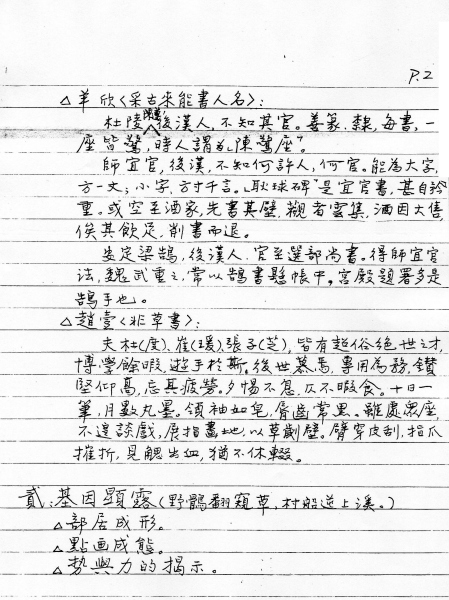 P.2
△羊欣〈采古來能書人名〉:
杜陵陳遵後漢人,不知其官。善篆、隸,每書,一
座皆驚,時人謂為"陳驚座"。
師宜官,後漢,不知何許人,何官。能為大字,
方一丈;小字,方寸千言。"耿球碑"是宜官書,甚自矜
重。或空至酒家,先書其壁,觀者雲集,酒因大售,
俟其飲足,削書而退。
安定梁鵠,後漢人,官至選部尚書。得師宜官
法,魏武重之,常以鵠書懸帳中。宮殿題署多是
鵠手也。
△趙壹〈非草書〉:
夫杜(度)、崔(瑗)、張子(芝),皆有超俗絕世之才,
博學餘暇,遊手於斯。後世慕焉,專用為務,鑽
堅仰高,忘其疲勞。夕惕不息,仄不暇食。十日一
筆,月數丸墨。領袖如皂,唇齒常黑。雖處眾座,
不遑談戲,展指畫地,以草劌壁。臂穿皮刮,指爪
摧折,見䚡出血,猶不休輟。
貳:基因顯露(野鶻翻窺草,村船逆上溪。)
△部居成形。
△點画成態。
△勢與力的揭示。